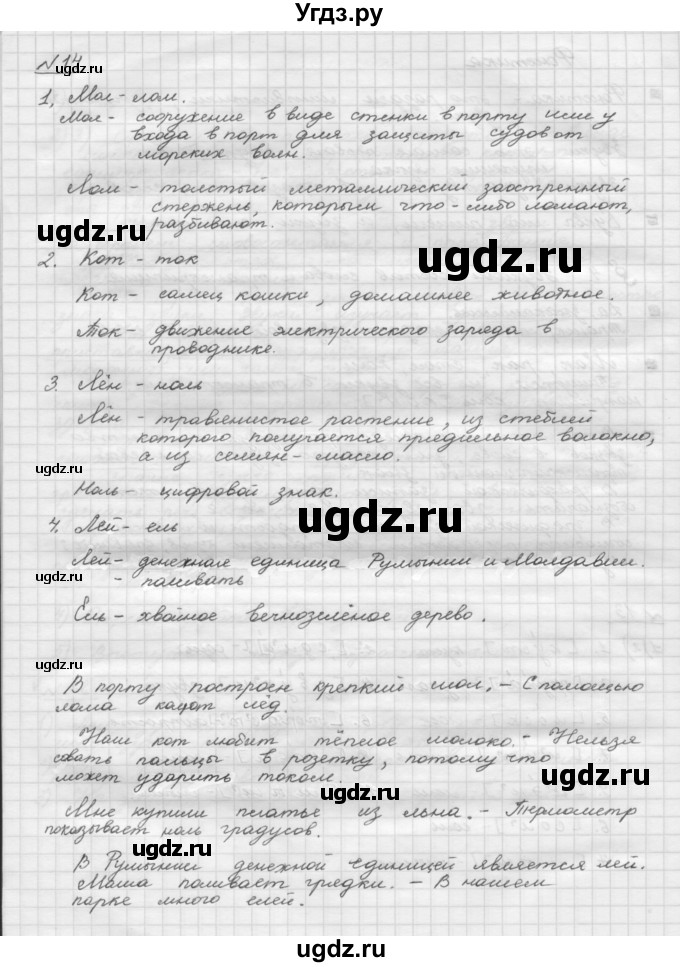 Угдз.ру
№14
ugdz.ru
1, Мол - лом.
Мол - сооружение в виде стенки в порту или у
входа в порт для защиты судов от
морских волн.
ugdz.ru
Лом - толстый металлический заостренный
стержень, которым что-либо ломают,
разбивают.
ugdz.ru
ugdz.ru
2. Кот - ток
Кот - самец кошки, домашнее животное.
Ток - движение электрического заряда в
проводнике.
ugdz.ru
3. Лён - ноль
Лён - травянистое растение, из стеблей
которого получается прядильное волокно,
а из семян - масло.
ugdz.ru
Ноль - цифровой знак.
ugdz.ru
4. Лей - ель
Лей - денежная единица Румынии и Молдавии.
- поливать
ugdz.ru
Ель - хвойное вечнозелёное дерево.
ugdz.ru
В порту построен крепкий мол. - С помощью
лома колют лёд.
ugdz.ru
Наш кот любит тёплое молоко. - Нельзя
совать пальцы в розетку, потому что
может ударить током.
ugdz.ru
ugdz.ru
Мне купили платье из льна. - Термометр
показывает ноль градусов.
ugdz.ru
В Румынии денежной единицей является лей.
Маша поливает грядки. - В нашем
парке много елей.
ugdz.ru
ugdz.ru